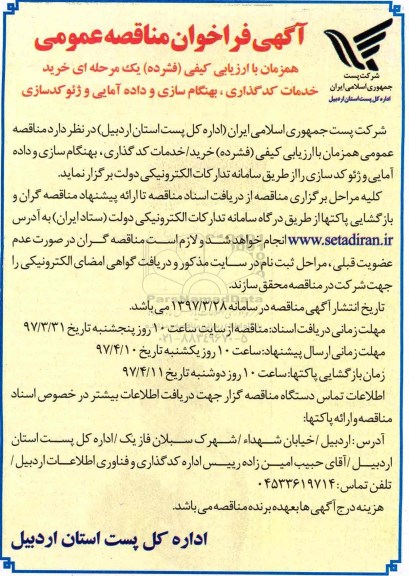 آگهی فراخوان مناقصه عمومی
همزمان با ارزیابی کیفی (فشرده) یک مرحله ای خرید
خدمات کدگذاری ، بهنگام سازی و داده آمایی و ژئوکدسازی
شرکت پست
جمهوری اسلامی ایران
اداره کل پست استان اردبیل
شرکت پست جمهوری اسلامی ایران (اداره کل پست استان اردبیل) در نظر دارد مناقصه
عمومی همزمان با ارزیابی کیفی (فشرده) خرید/خدمات کد گذاری ، بهنگام سازی و داده
آمایی و ژئو کدسازی را از طریق سامانه تدارکات الکترونیکی دولت برگزار نماید.
کلیه مراحل برگزاری مناقصه از دریافت اسناد مناقصه تا ارائه پیشنهاد مناقصه گران و
بازگشایی پاکتها از طریق درگاه سامانه تدارکات الکترونیکی دولت (ستاد ایران) به آدرس
www.setadiran.ir انجام خواهد شد و لازم است مناقصه گران در صورت عدم
عضویت قبلی ، مراحل ثبت نام در سایت مذکور و دریافت گواهی امضای الکترونیکی را
جهت شرکت در مناقصه محقق سازند.
تاریخ انتشار آگهی مناقصه در سامانه ۱۳۹۷/۳/۲۸ می باشد.
مهلت زمانی دریافت اسناد: مناقصه از سایت ساعت ۱۰ روز پنجشنبه تاریخ ۹۷/۳/۳۱
مهلت زمانی ارسال پیشنهاد: ساعت ۱۰ روز یکشنبه تاریخ ۹۷/۴/۱۰
زمان بازگشایی پاکتها: ساعت ۱۰ روز دوشنبه تاریخ ۹۷/۴/۱۱
اطلاعات تماس دستگاه مناقصه گزار جهت دریافت اطلاعات بیشتر در خصوص اسناد
مناقصه و ارائه پاکتها:
آدرس : اردبیل / خیابان شهداء / شهرک سبلان فاز یک / اداره کل پست استان
اردبیل / آقای حبیب امین زاده رییس اداره کدگذاری و فناوری اطلاعات اردبیل /
تلفن تماس : ۰۴۵۳۳۶۱۹۷۱۴
هزینه درج آگهی ها بعهده برنده مناقصه می باشد.
اداره کل پست استان اردبیل